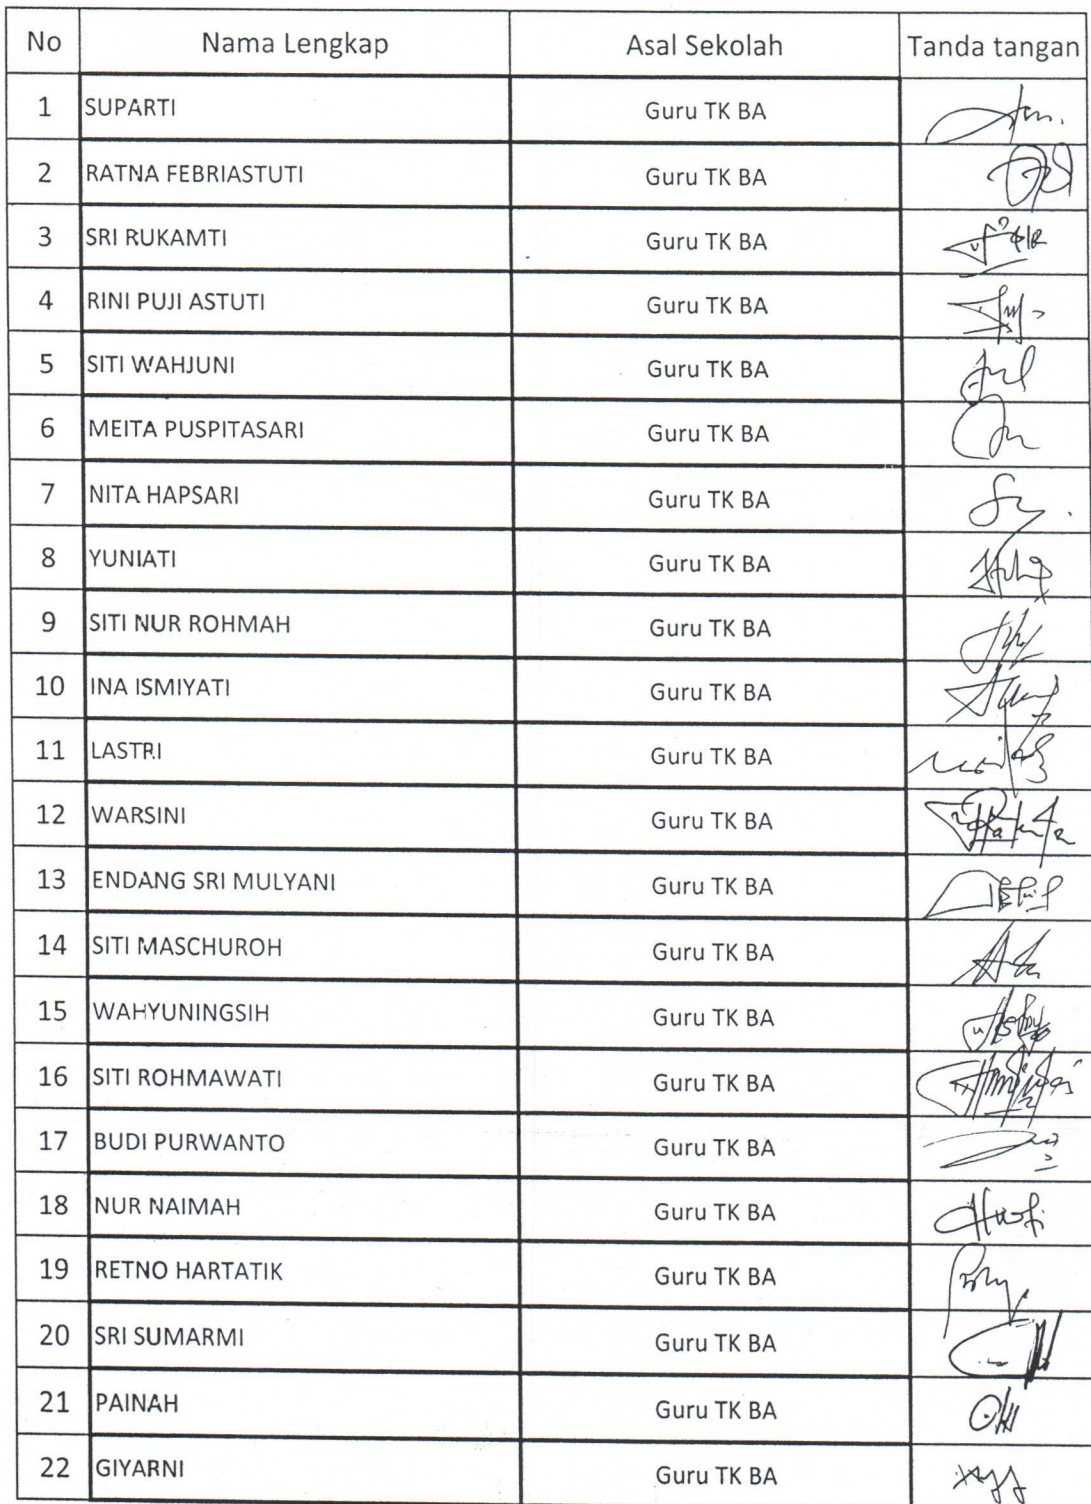 No Nama Lengkap Asal Sekolah Tanda tangan
1 SUPARTI Guru TK BA
2 RATNA FEBRIASTUTI Guru TK BA
3 SRI RUKAMTI Guru TK BA
4 RINI PUJI ASTUTI Guru TK BA
5 SITI WAHJUNI Guru TK BA
6 MEITA PUSPITASARI Guru TK BA
7 NITA HAPSARI Guru TK BA
8 YUNIATI Guru TK BA
9 SITI NUR ROHMAH Guru TK BA
10 INA ISMIYATI Guru TK BA
11 LASTRI Guru TK BA
12 WARSINI Guru TK BA
13 ENDANG SRI MULYANI Guru TK BA
14 SITI MASCHUROH Guru TK BA
15 WAHYUNINGSIH Guru TK BA
16 SITI ROHMAWATI Guru TK BA
17 BUDI PURWANTO Guru TK BA
18 NUR NAIMAH Guru TK BA
19 RETNO HARTATIK Guru TK BA
20 SRI SUMARMI Guru TK BA
21 PAINAH Guru TK BA
22 GIYARNI Guru TK BA